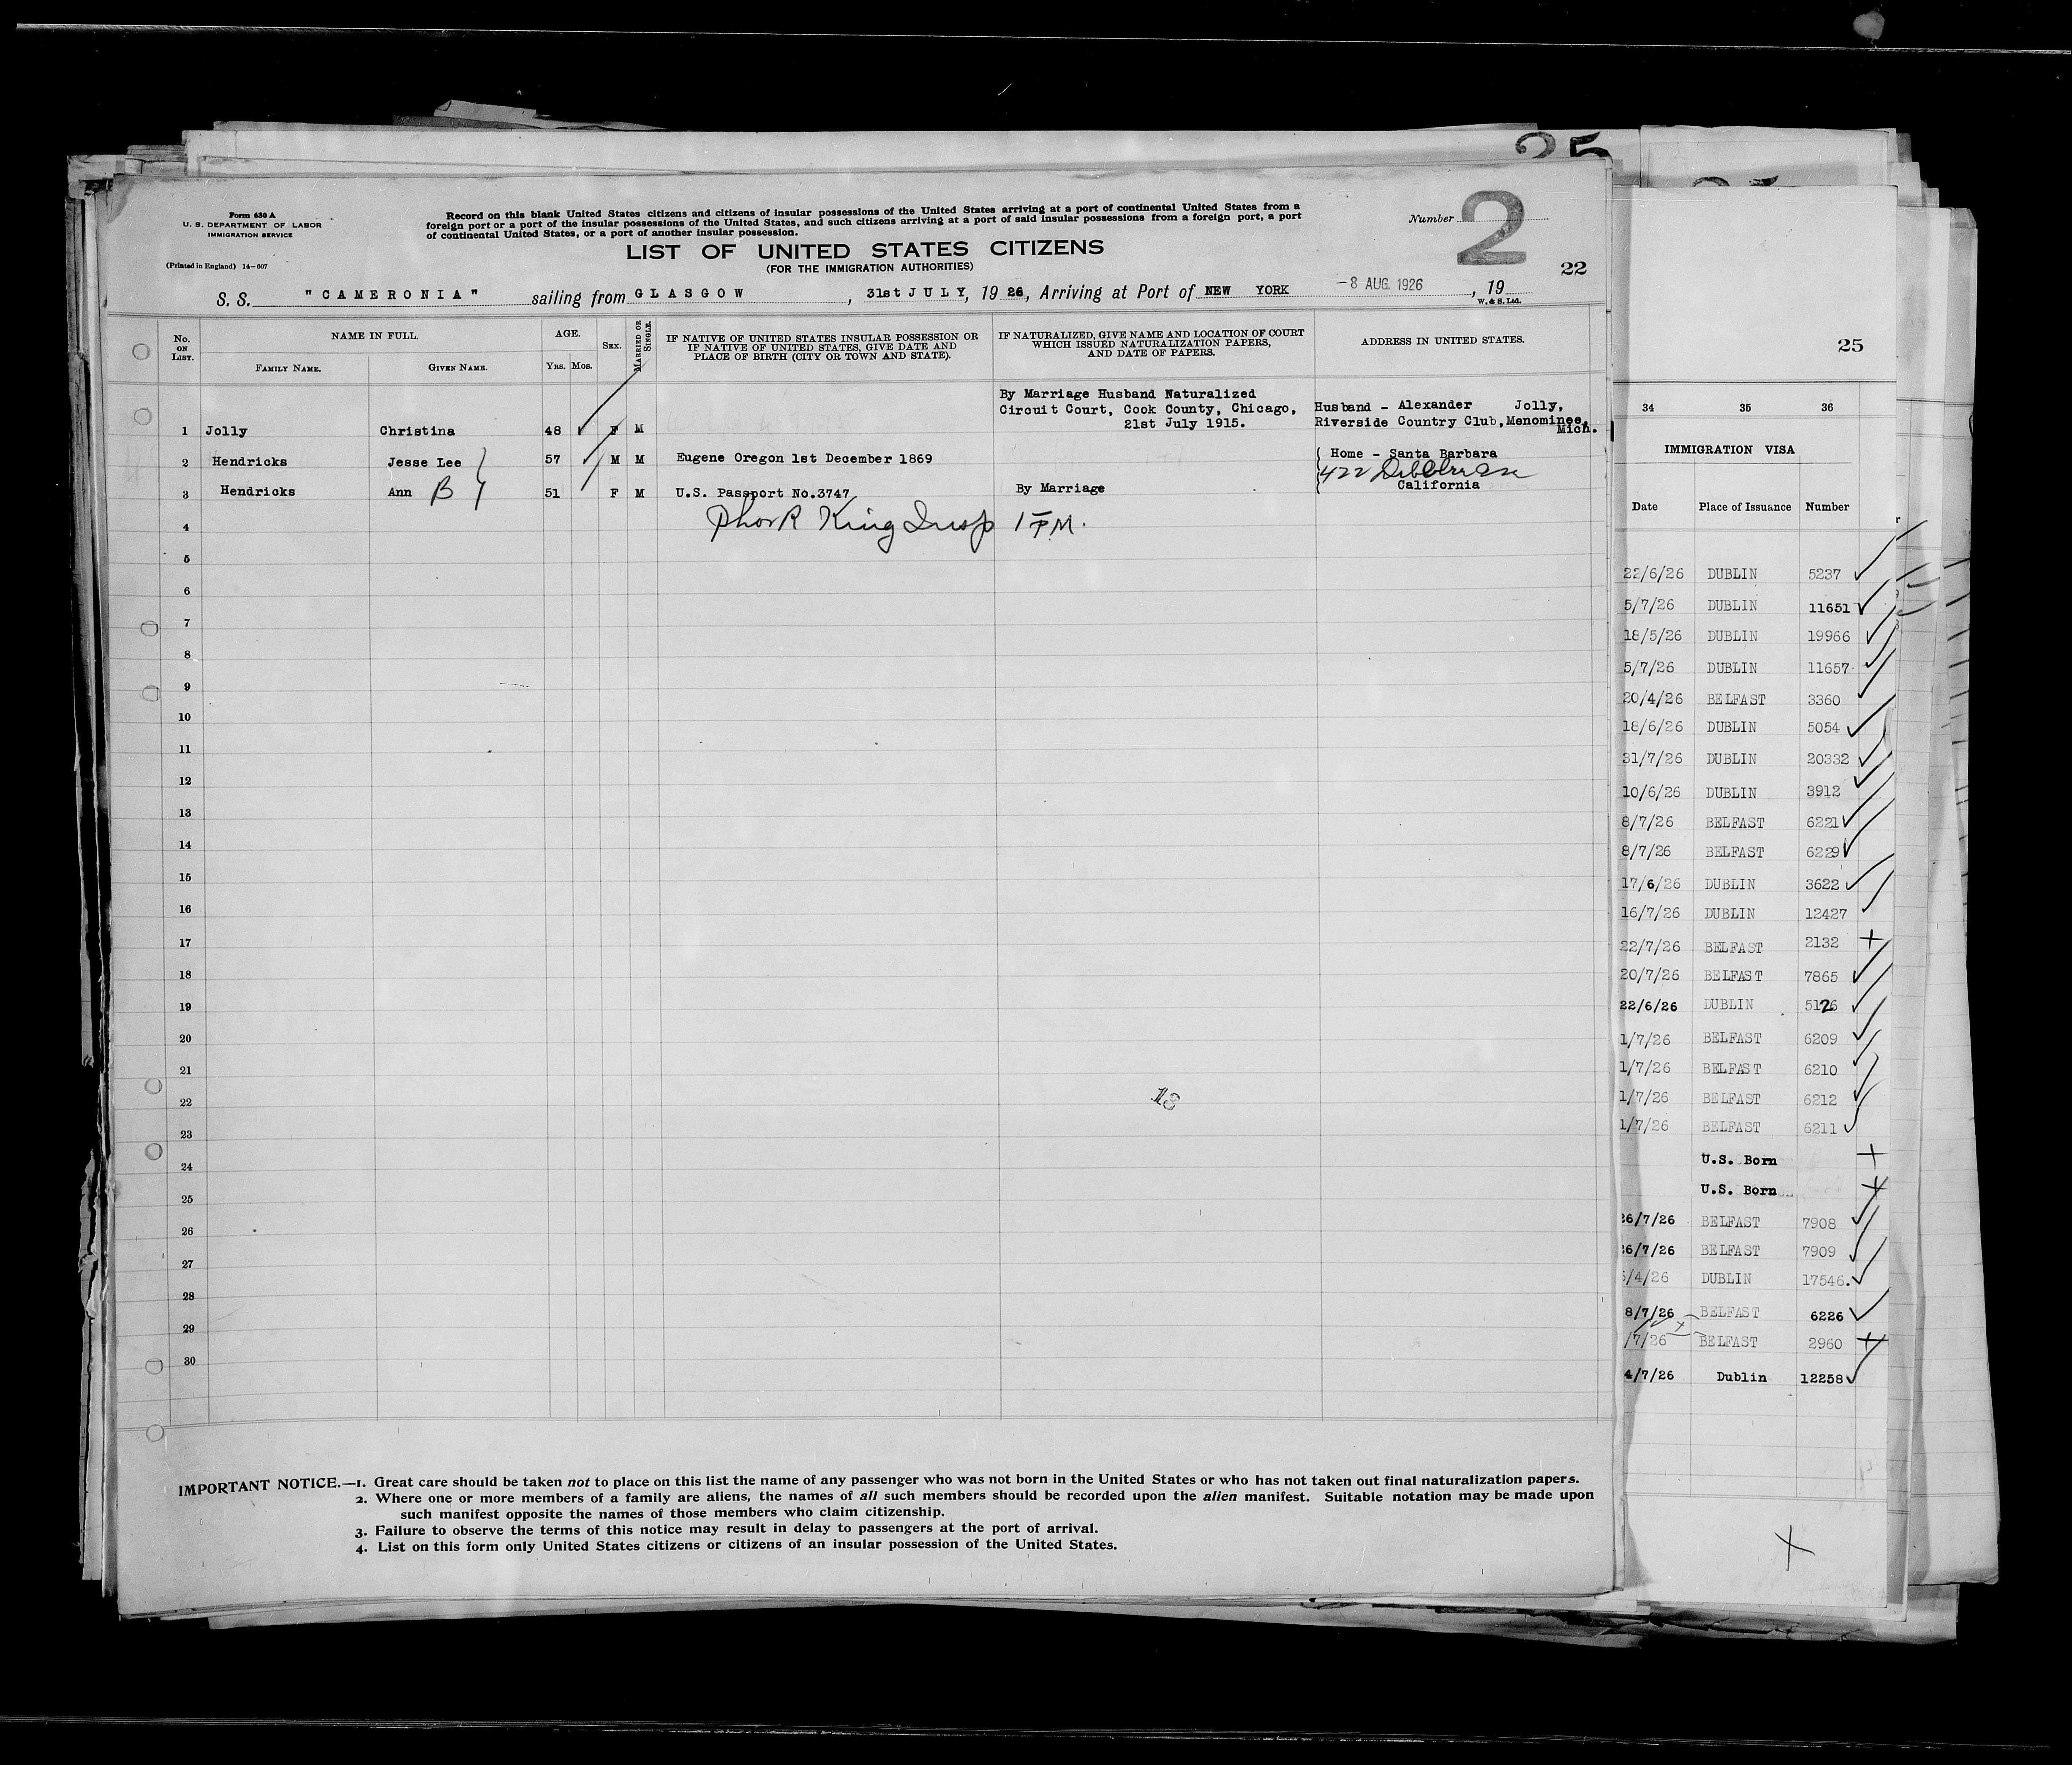 25
Form 630 A
U. S. DEPARTMENT OF LABOR
IMMIGRATION SERVICE
(Printed in England) 14-607
Record on this blank United States citizens and citizens of insular possessions of the United States arriving at a port of continental United States from a
foreign port or a port of the insular possessions of the United States, and such citizens arriving at a port of said insular possessions from a foreign port, a port
of continental United States, or a port of another insular possession.
Number 2
LIST OF UNITED STATES CITIZENS
(FOR THE IMMIGRATION AUTHORITIES)
22
S. S. "CAMERONIA" sailing from GLASGOW, 31st JULY, 1926, Arriving at Port of NEW YORK -8 AUG. 1926, 19
W. & S. Ltd.
No. ON LIST.
NAME IN FULL.
FAMILY NAME. GIVEN NAME.
AGE.
Yrs. Mos.
SEX.
MARRIED OR SINGLE.
IF NATIVE OF UNITED STATES INSULAR POSSESSION OR
IF NATIVE OF UNITED STATES, GIVE DATE AND
PLACE OF BIRTH (CITY OR TOWN AND STATE).
IF NATURALIZED, GIVE NAME AND LOCATION OF COURT
WHICH ISSUED NATURALIZATION PAPERS,
AND DATE OF PAPERS.
ADDRESS IN UNITED STATES.
By Marriage Husband Naturalized
Circuit Court, Cook County, Chicago,
21st July 1915.
Husband - Alexander Jolly,
Riverside Country Club, Menominee,
Mich.
1 Jolly Christina 48 F M
2 Hendricks Jesse Lee 57 M M Eugene Oregon 1st December 1869 Home - Santa Barbara
422
California
3 Hendricks Ann B 51 F M U.S. Passport No.3747 By Marriage
4 King Insp 1 PM.
5
6
7
8
9
10
11
12
13
14
15
16
17
18
19
20
21
22
23
24
25
26
27
28
29
30
18
IMPORTANT NOTICE.—1. Great care should be taken not to place on this list the name of any passenger who was not born in the United States or who has not taken out final naturalization papers.
2. Where one or more members of a family are aliens, the names of all such members should be recorded upon the alien manifest. Suitable notation may be made upon
such manifest opposite the names of those members who claim citizenship.
3. Failure to observe the terms of this notice may result in delay to passengers at the port of arrival.
4. List on this form only United States citizens or citizens of an insular possession of the United States.
25
34 35 36
IMMIGRATION VISA
Date Place of Issuance Number
22/6/26 DUBLIN 5237
5/7/26 DUBLIN 11651
18/5/26 DUBLIN 19966
5/7/26 DUBLIN 11657
20/4/26 BELFAST 3360
18/6/26 DUBLIN 5054
31/7/26 DUBLIN 20332
10/6/26 DUBLIN 3912
8/7/26 BELFAST 6221
8/7/26 BELFAST 6229
17/6/26 DUBLIN 3622
16/7/26 DUBLIN 12427
22/7/26 BELFAST 2132
20/7/26 BELFAST 7865
22/6/26 DUBLIN 5126
1/7/26 BELFAST 6209
1/7/26 BELFAST 6210
1/7/26 BELFAST 6212
1/7/26 BELFAST 6211
U.S. Born
U.S. Born
26/7/26 BELFAST 7908
26/7/26 BELFAST 7909
/4/26 DUBLIN 17546.
8/7/26 BELFAST 6226
/7/26 BELFAST 2960
4/7/26 Dublin 12258